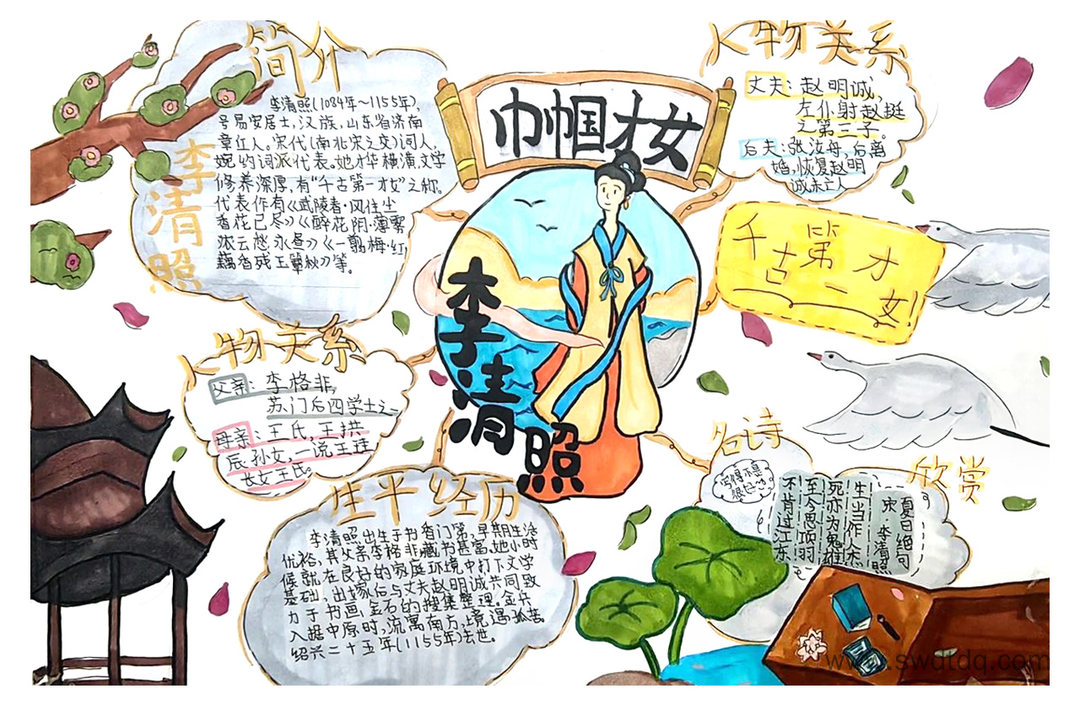 巾帼才女
李清照
简介
李清照
李清照(1084年～1155年),
号易安居士,汉族,山东省济南
章丘人。宋代(南北宋之交)词人,
婉约词派代表。她才华横溢,文学
修养深厚,有"千古第一才女"之称。
代表作有《武陵春·风住尘
香花已尽》《醉花阴·薄雾
浓云愁永昼》《一剪梅·红
藕香残玉簟秋》等。
人物关系
丈夫:赵明诚,
左仆射赵挺
之第三子。
后夫:张汝舟,后离
婚,恢复赵明
诚未亡人
千古第一才女
人物关系
父亲:李格非,
苏门后四学士之一
母亲:王氏,王拱
辰孙女,一说王珪
长女王氏。
生平经历
李清照出生于书香门第,早期生活
优裕,其父亲李格非藏书甚富,她小时
候就在良好的家庭环境中打下文学
基础,出嫁后与丈夫赵明诚共同致
力于书画金石的搜集整理,金兵
入据中原时,流寓南方,境遇孤苦。
绍兴二十五年(1155年)去世。
名诗
欣赏
夏日绝句
宋·李清照
生当作人杰
死亦为鬼雄
至今思项羽
不肯过江东
www.swdtdq.com